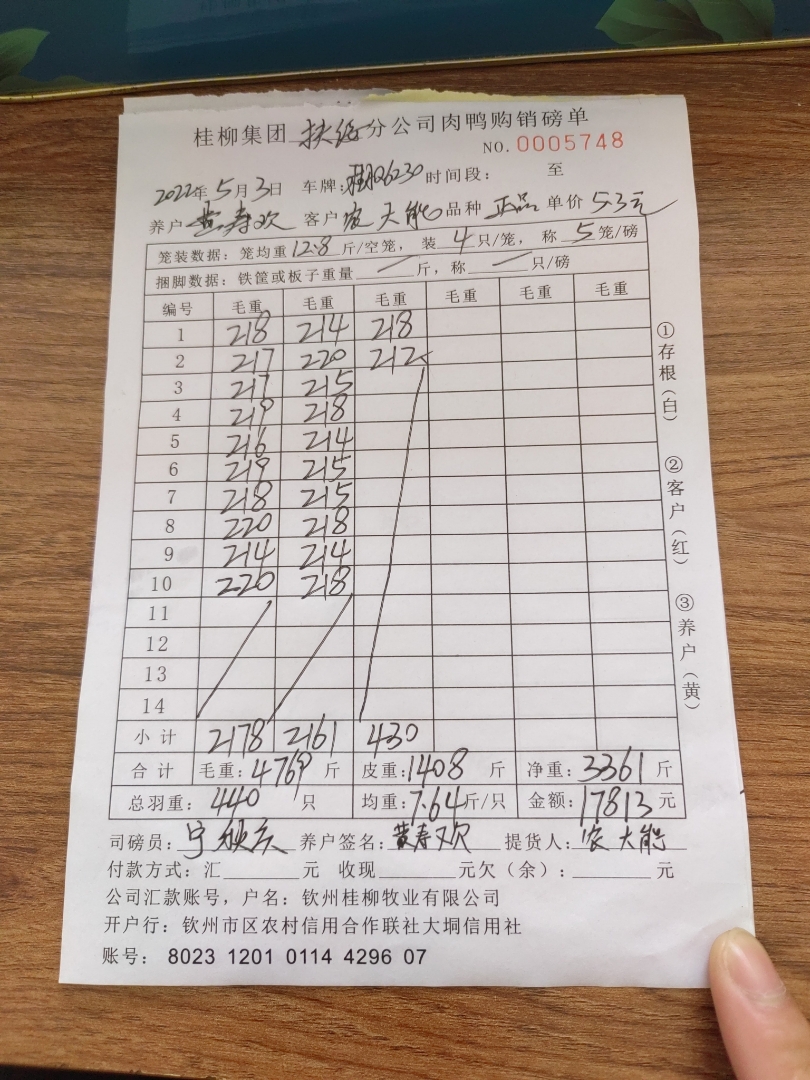 桂柳集团 扶绥 分公司肉鸭购销磅单
NO. 0005748
2022年 5月 3日 车牌: 6230 时间段: 至
养户 黄寿欢 客户 农大能 品种 正品 单价 5.3元
笼装数据: 笼均重 12.8 斤/空笼, 装 4 只/笼, 称 5 笼/磅
捆脚数据: 铁筐或板子重量 斤, 称 只/磅
编号 毛重 毛重 毛重 毛重 毛重 毛重
1 218 214 218
2 217 220 212
3 217 215
4 219 218
5 216 214
6 219 215
7 218 215
8 220 218
9 214 214
10 220 218
11
12
13
14
小计 2178 2161 430
合计 毛重: 4769 斤 皮重: 1408 斤 净重: 3361 斤
总羽重: 440 只 均重: 7.64 斤/只 金额: 17813 元
司磅员: 宁 养户签名: 黄寿欢 提货人: 农大能
付款方式: 汇 元 收现 元欠(余): 元
公司汇款账号, 户名: 钦州桂柳牧业有限公司
开户行: 钦州市区农村信用合作联社大垌信用社
账号: 8023 1201 0114 4296 07
①存根(白)
②客户(红)
③养户(黄)